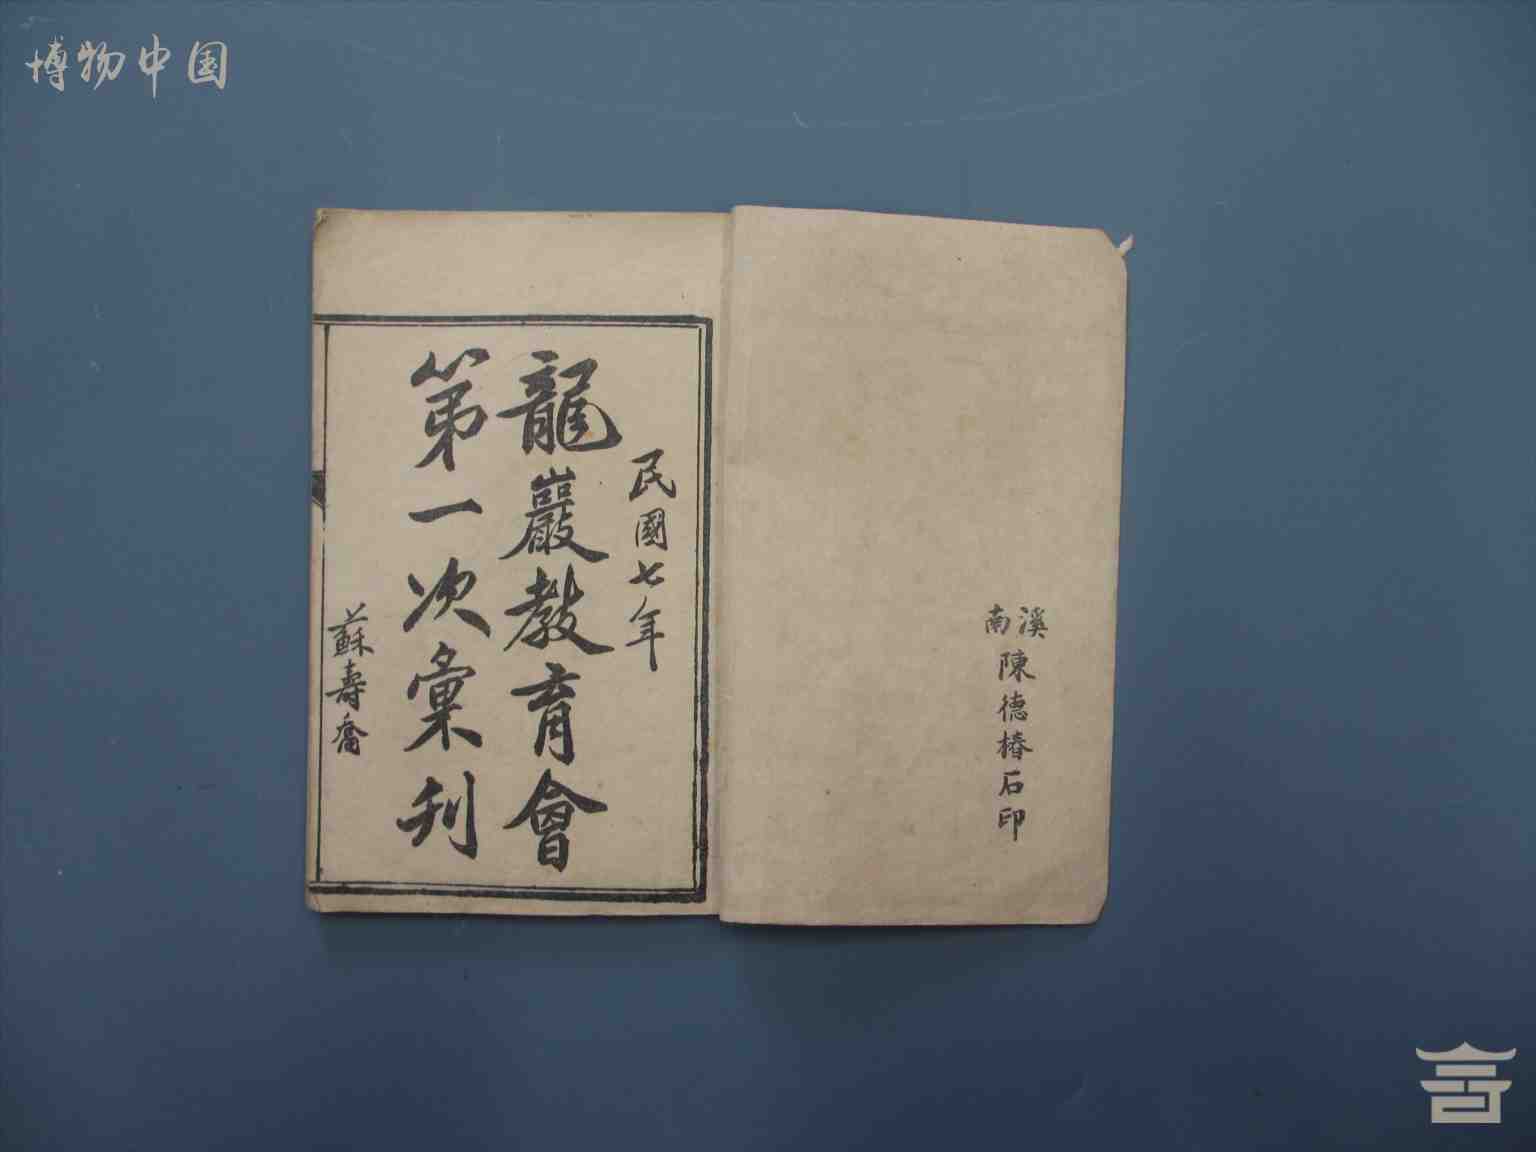 博物中国
溪南
陳德椿石印
民國七年
龍巖教育會
第一次彙刊
蘇壽喬